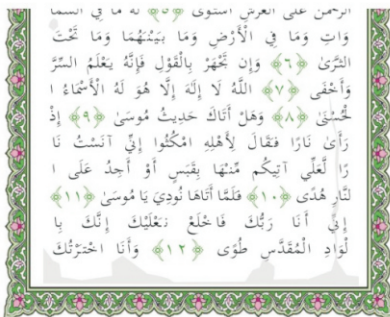 الرحمن على العرش استوى ﴿٥﴾ له ما في السما
وَاتِ وَمَا فِي الْأَرْضِ وَمَا بَيْنَهُمَا وَمَا تَحْتَ
الثَّرَىٰ ﴿٦﴾ وَإِن تَجْهَرْ بِالْقَوْلِ فَإِنَّهُ يَعْلَمُ السِّرَّ
وَأَخْفَى ﴿٧﴾ اللَّهُ لَا إِلَهَ إِلَّا هُوَ لَهُ الْأَسْمَاءُ ا
لْحُسْنَىٰ ﴿٨﴾ وَهَلْ أَتَاكَ حَدِيثُ مُوسَى ﴿٩﴾ إِذْ
رَأَىٰ نَارًا فَقَالَ لِأَهْلِهِ امْكُثُوا إِنِّي آنَسْتُ نَا
رًا لَّعَلِّي آتِيكُم مِّنْهَا بِقَبَسٍ أَوْ أَجِدُ عَلَى ا
لنَّارِ هُدًى ﴿١٠﴾ فَلَمَّا أَتَاهَا نُودِيَ يَا مُوسَىٰ ﴿١١﴾
إِنِّي أَنَا رَبُّكَ فَاخْلَعْ نَعْلَيْكَ إِنَّكَ بِا
لْوَادِ الْمُقَدَّسِ طُوًى ﴿١٢﴾ وَأَنَا اخْتَرْتُكَ